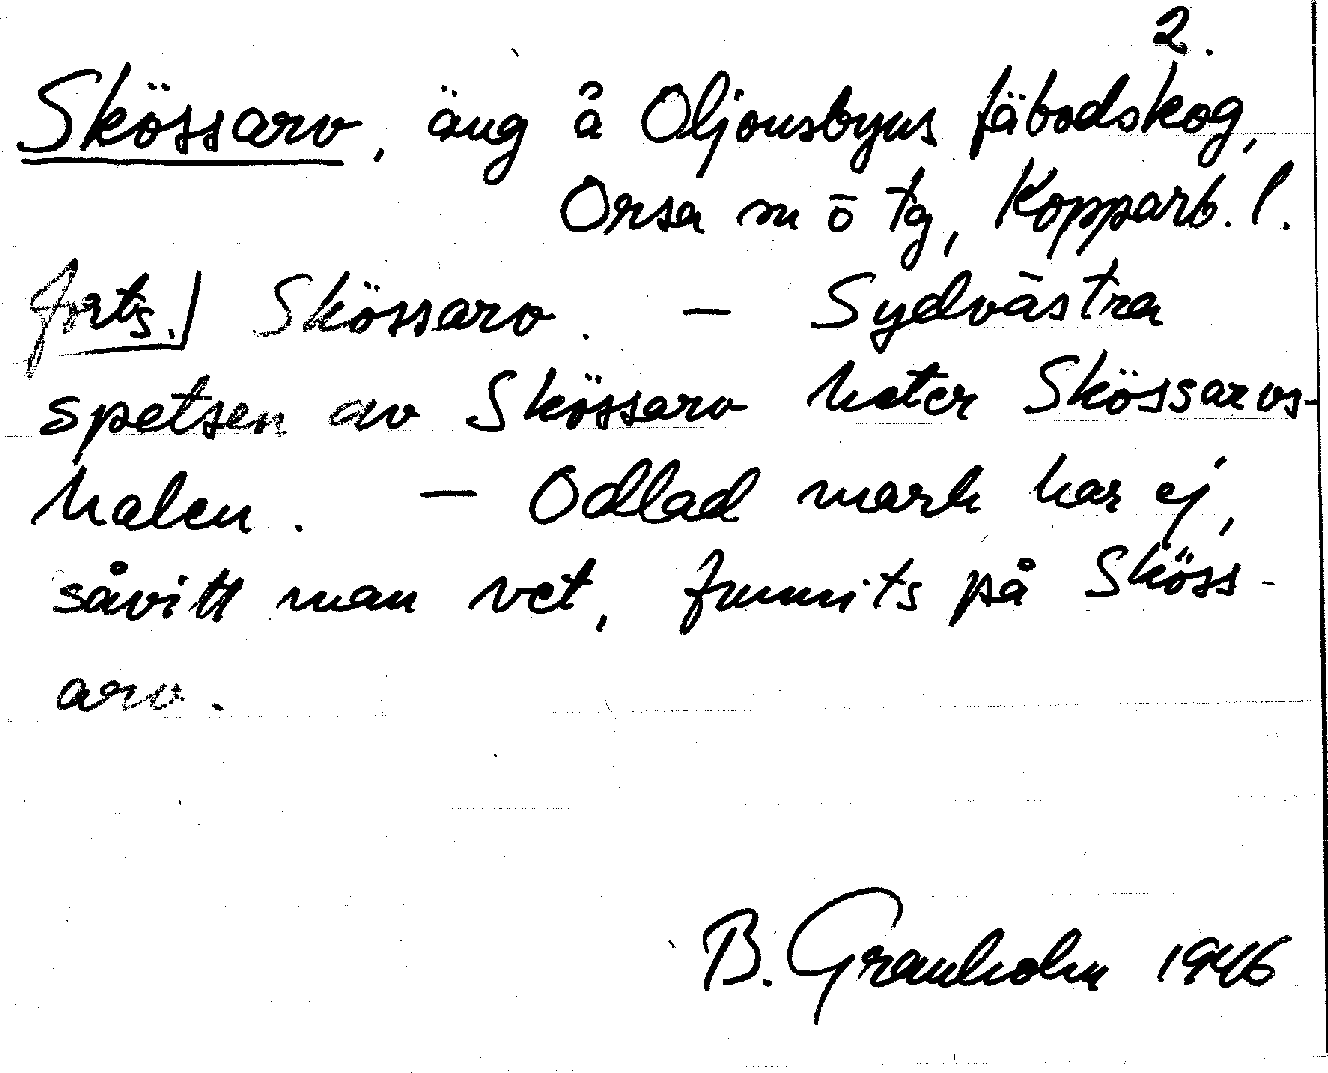 2.
Skössarv, äng å Oljonsbyns fäbodskog,
Orsa sn o tg, Kopparb. l.
forts. Skössarv. — Sydvästra
spetsen av Skössarv heter Skössarvs-
halen. — Odlad mark har ej,
såvitt man vet, funnits på Sköss-
arv.
B. Granholm 1946